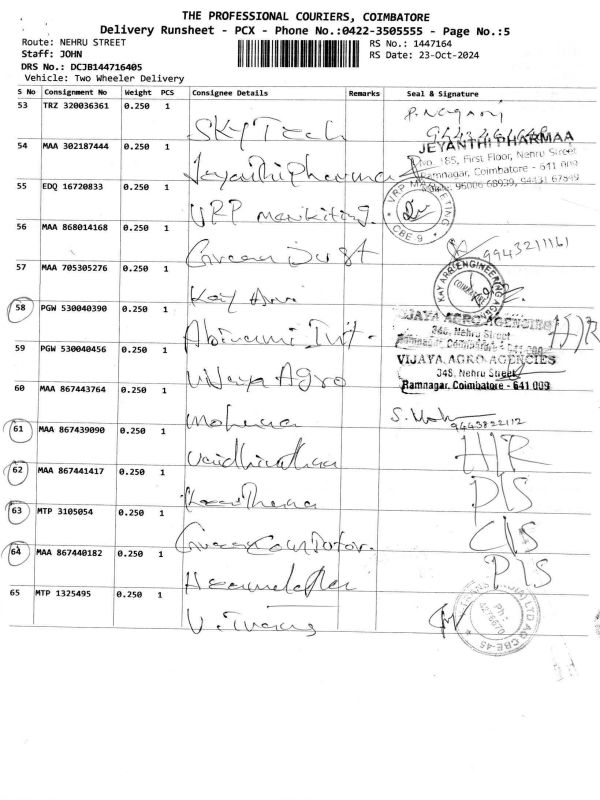 THE PROFESSIONAL COURIERS, COIMBATORE
Delivery Runsheet - PCX - Phone No.:0422-3505555 - Page No.:5
Route: NEHRU STREET
RS No.: 1447164
Staff: JOHN
RS Date: 23-Oct-2024
DRS No.: DCJB144716405
Vehicle: Two Wheeler Delivery
S No Consignment No Weight PCS Consignee Details Remarks Seal & Signature
53 TRZ 320036361 0.250 1
SKY Tech
54 MAA 302187444 0.250 1
Jeyanthi Pharma
JEYANTHI PHARMAA
No. 185, First Floor, Nehru Street
Ramnagar, Coimbatore - 641 009
55 EDQ 16720833 0.250 1
VRP
VRP MARKETING
CBE 9
56 MAA 868014168 0.250 1
Green
9943211161
57 MAA 705305276 0.250 1
Kay
KAY ARR ENGINEERING
58 PGW 530040390 0.250 1
Abirami
H)R
VIJAYA AGRO AGENCIES
348, Nehru Street
Ramnagar, Coimbatore - 641 009
59 PGW 530040456 0.250 1
Vijaya Agro
VIJAYA AGRO AGENCIES
348, Nehru Street
Ramnagar, Coimbatore - 641 009
60 MAA 867443764 0.250 1
9443822112
61 MAA 867439090 0.250 1
H)R
62 MAA 867441417 0.250 1
D)S
63 MTP 3105054 0.250 1
C)S
64 MAA 867440182 0.250 1
P)S
65 MTP 1325495 0.250 1
LTD
CBE-45